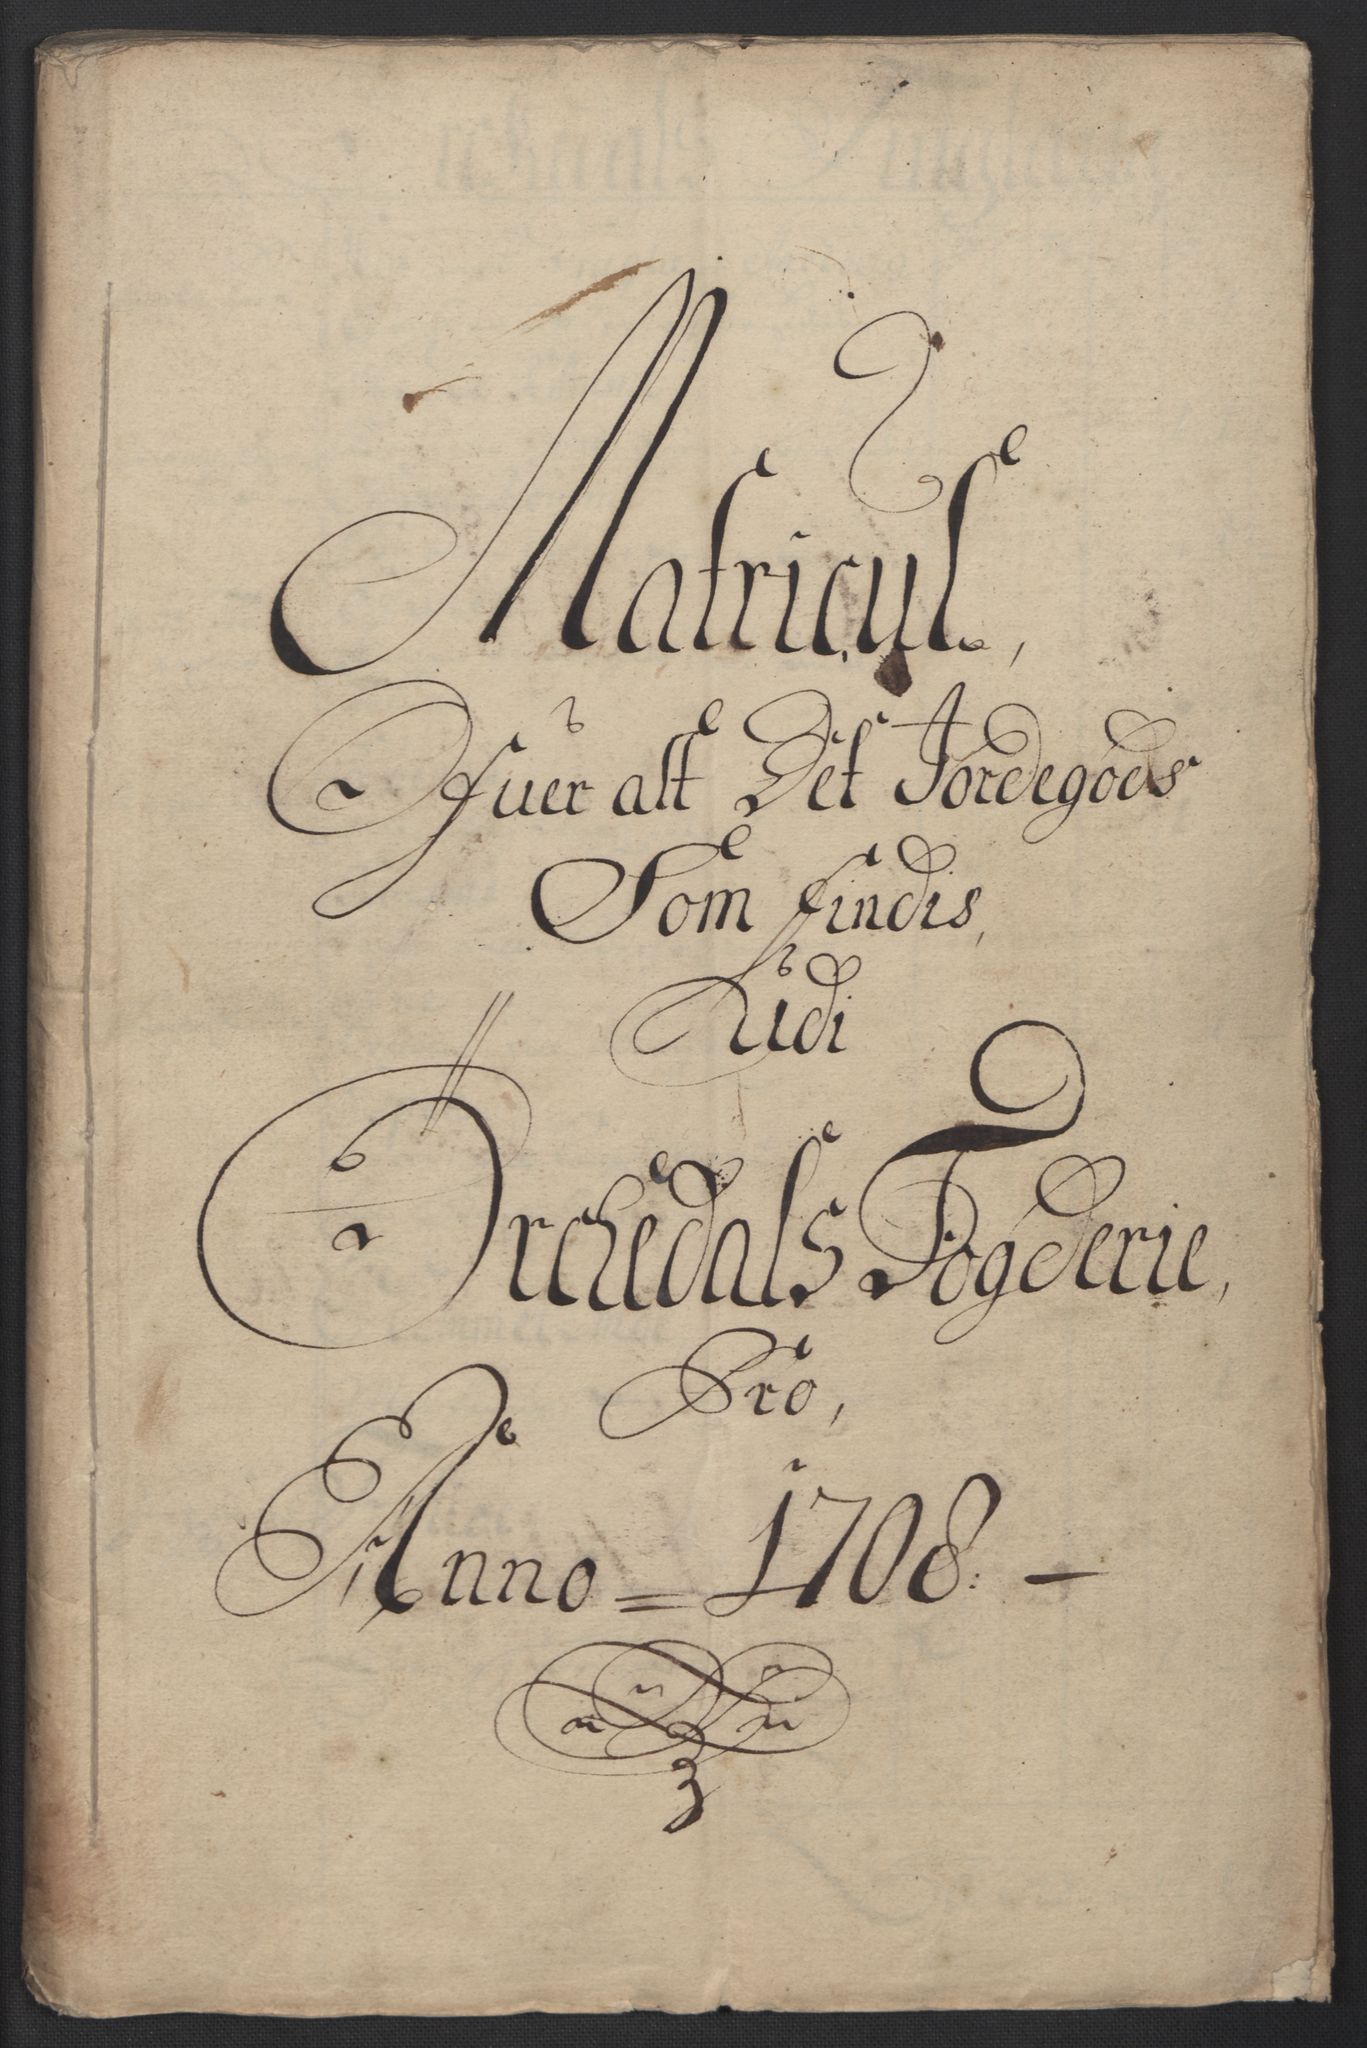 Matricul,
Ofuer alt Det Jordegods
Som findis,
Udi
Orchedals Fogderie,
Pro,
Anno = 1708. —